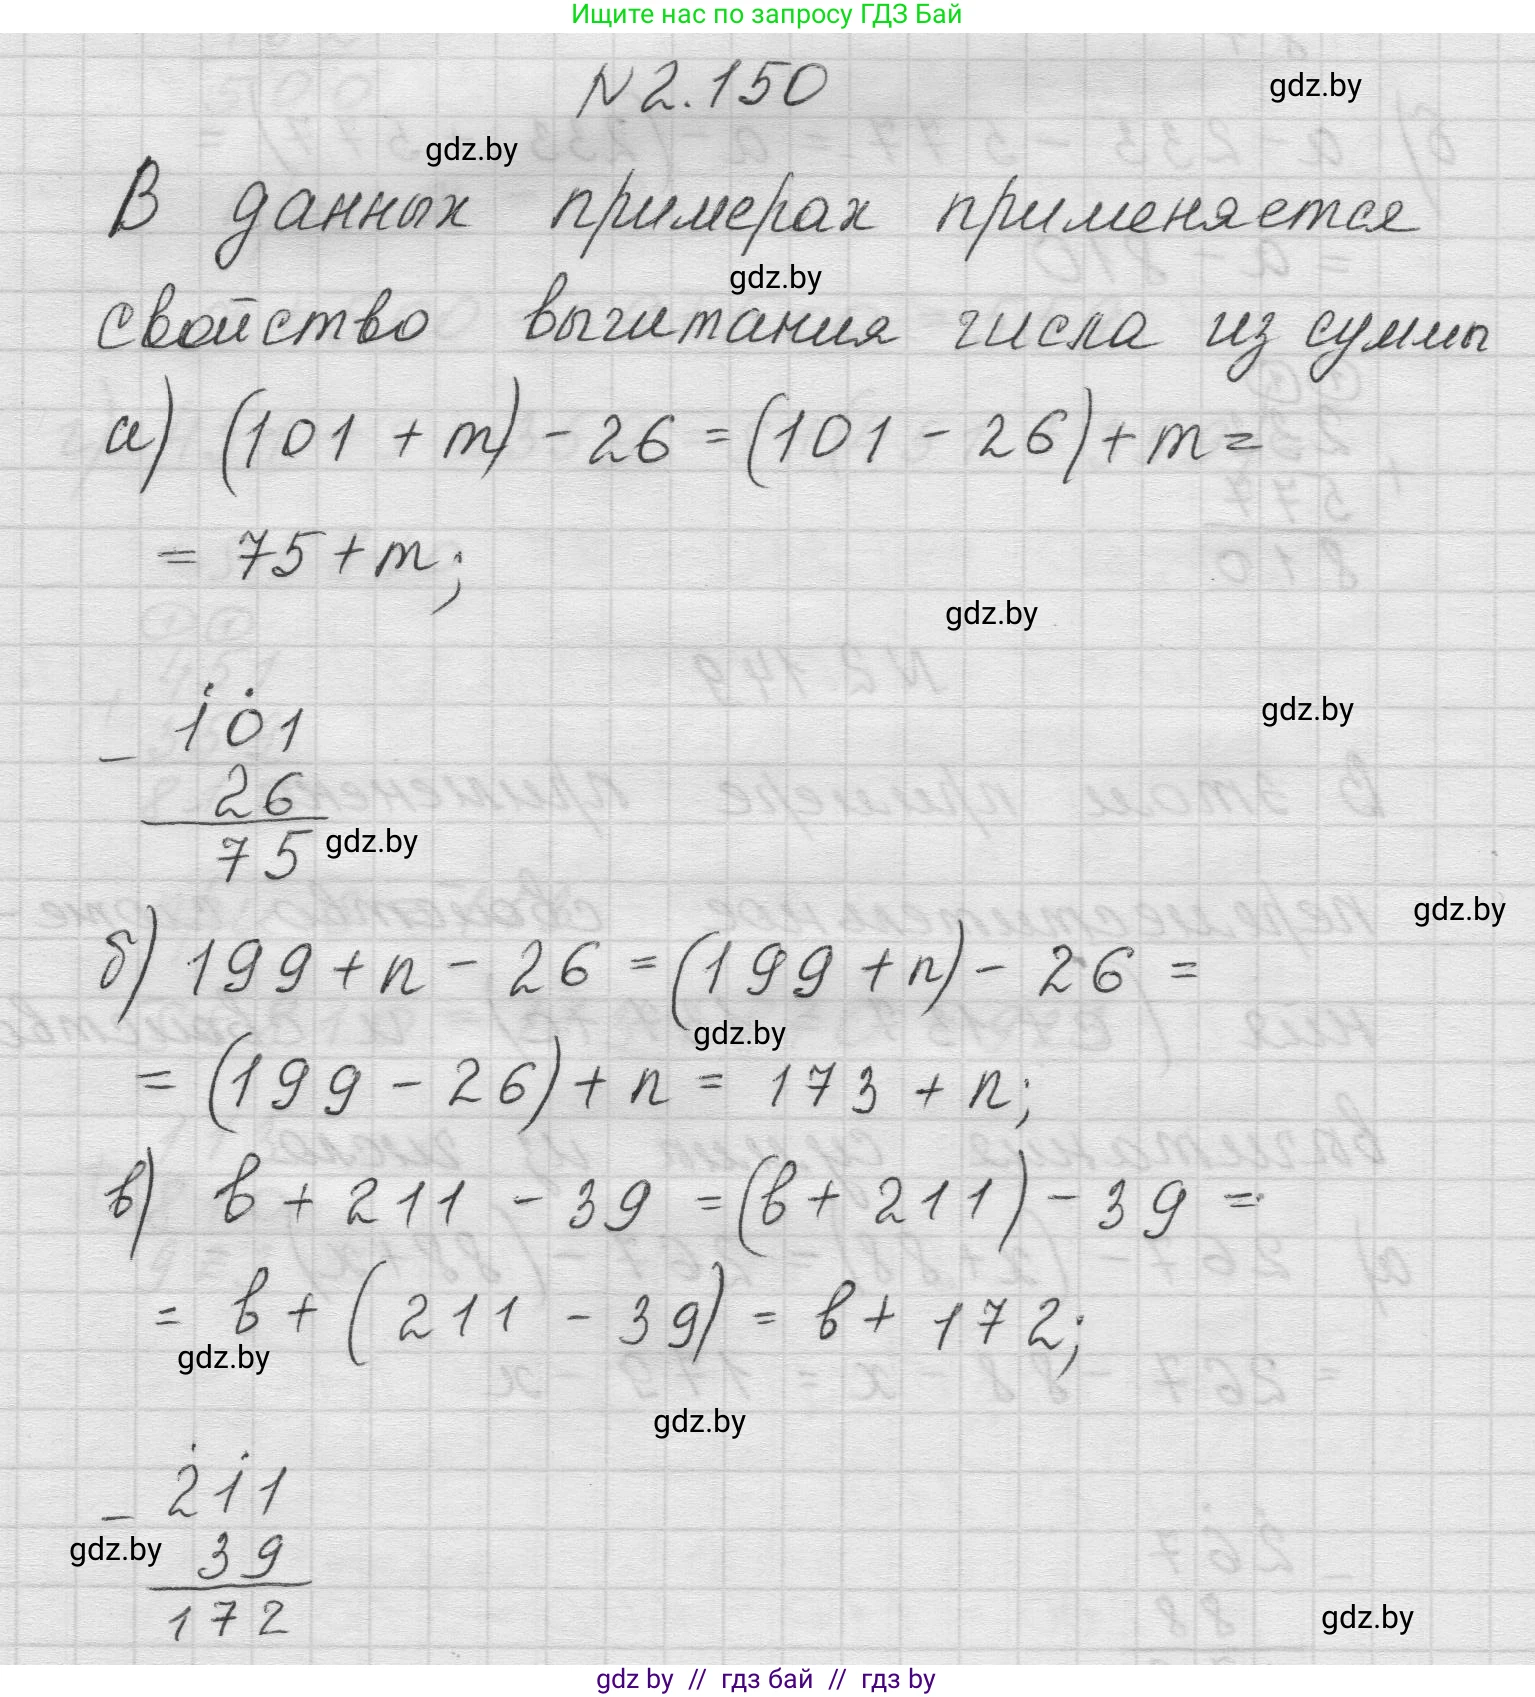 Ищите нас по запросу ГДЗ Бай
N 2.150
gdz.by
gdz.by
В данных примерах применяется
gdz.by
свойство вычитания числа из суммы
а) (101 + m) - 26 = (101 - 26) + m =
= 75 + m;
gdz.by
gdz.by
101
- 26
75
gdz.by
gdz.by
б) 199 + n - 26 = (199 + n) - 26 =
gdz.by
= (199 - 26) + n = 173 + n;
в) b + 211 - 39 = (b + 211) - 39 =
= b + (211 - 39) = b + 172;
gdz.by
gdz.by
211
- 39
gdz.by
172
gdz.by
gdz by // гдз бай // гдз by